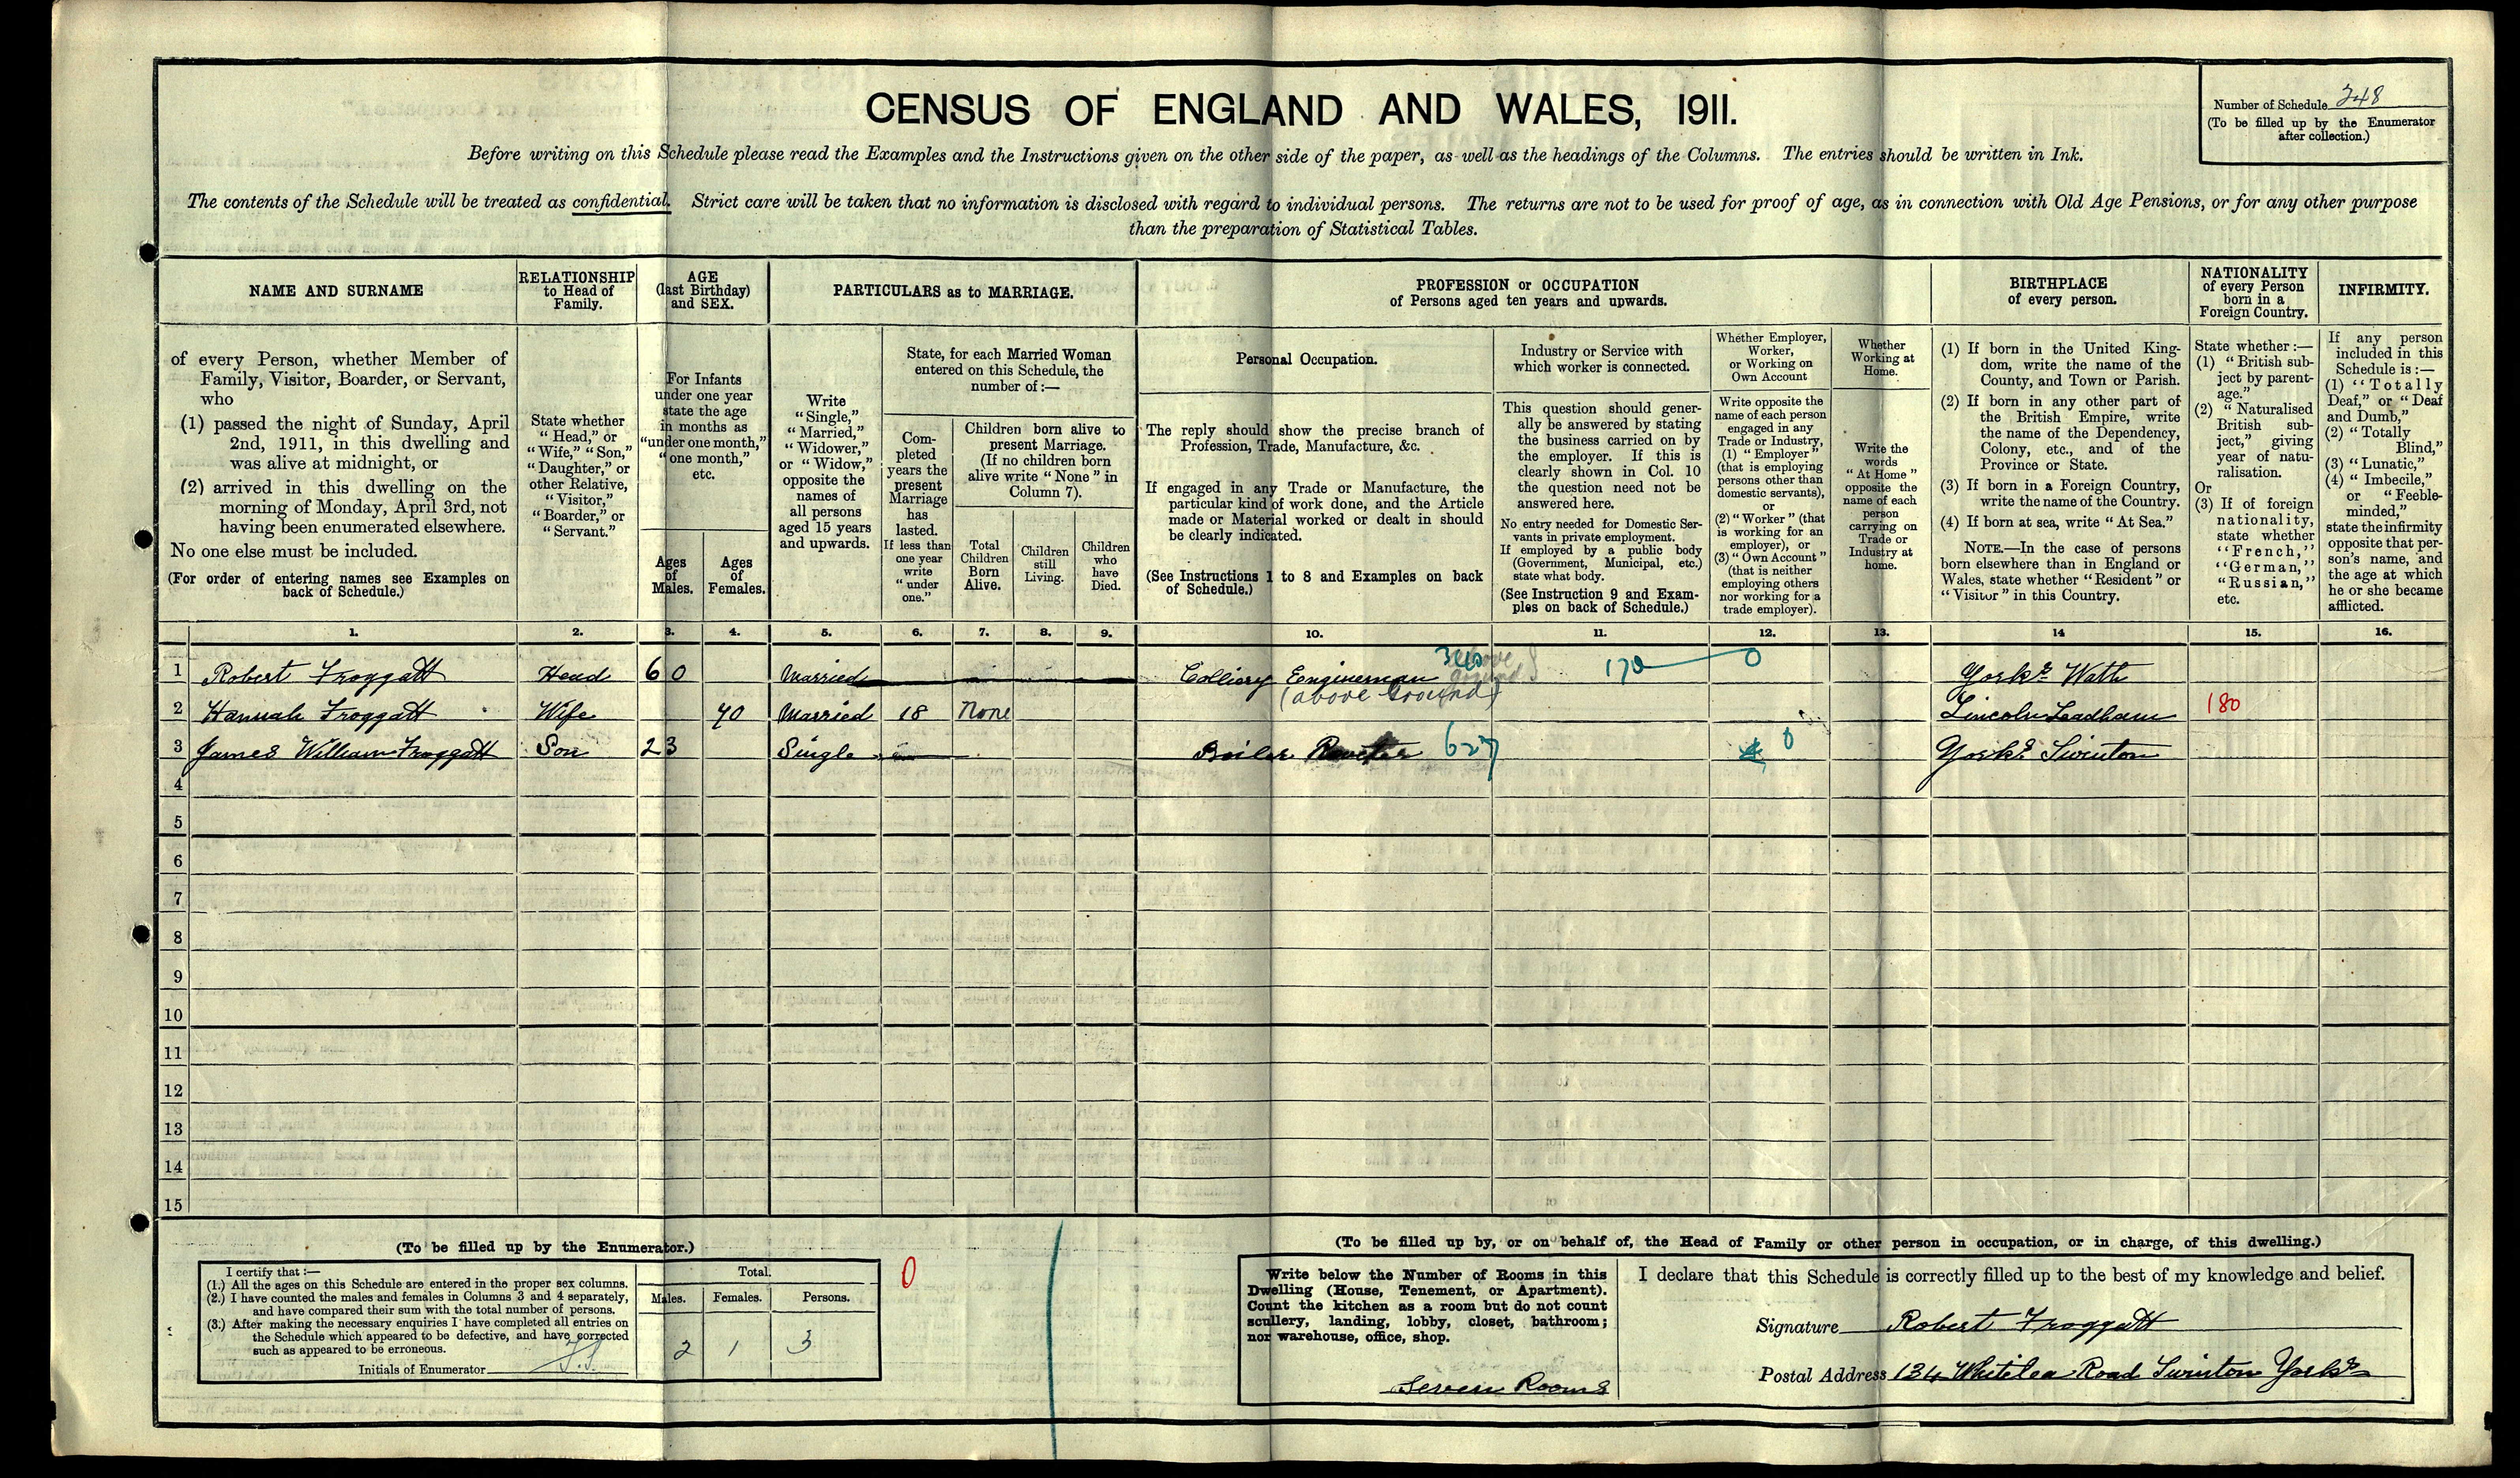 CENSUS OF ENGLAND AND WALES, 1911.
Number of Schedule 248
(To be filled up by the Enumerator
after collection.)
Before writing on this Schedule please read the Examples and the Instructions given on the other side of the paper, as well as the headings of the Columns. The entries should be written in Ink.
The contents of the Schedule will be treated as confidential. Strict care will be taken that no information is disclosed with regard to individual persons. The returns are not to be used for proof of age, as in connection with Old Age Pensions, or for any other purpose
than the preparation of Statistical Tables.
NAME AND SURNAME
of every Person, whether Member of
Family, Visitor, Boarder, or Servant,
who
(1) passed the night of Sunday, April
2nd, 1911, in this dwelling and
was alive at midnight, or
(2) arrived in this dwelling on the
morning of Monday, April 3rd, not
having been enumerated elsewhere.
No one else must be included.
(For order of entering names see Examples on
back of Schedule.)
RELATIONSHIP
to Head of
Family.
State whether
"Head," or
"Wife," "Son,"
"Daughter," or
other Relative,
"Visitor,"
"Boarder," or
"Servant."
AGE
(last Birthday)
and SEX.
For Infants
under one year
state the age
in months as
"under one month,"
"one month,"
etc.
Ages
of
Males.
Ages
of
Females.
PARTICULARS as to MARRIAGE.
Write
"Single,"
"Married,"
"Widower,"
or "Widow,"
opposite the
names of
all persons
aged 15 years
and upwards.
State, for each Married Woman
entered on this Schedule, the
number of:—
Com-
pleted
years the
present
Marriage
has
lasted.
If less than
one year
write
"under
one."
Children born alive to
present Marriage.
(If no children born
alive write "None" in
Column 7).
Total
Children
Born
Alive.
Children
still
Living.
Children
who
have
Died.
PROFESSION or OCCUPATION
of Persons aged ten years and upwards.
Personal Occupation.
The reply should show the precise branch of
Profession, Trade, Manufacture, &c.
If engaged in any Trade or Manufacture, the
particular kind of work done, and the Article
made or Material worked or dealt in should
be clearly indicated.
(See Instructions 1 to 8 and Examples on back
of Schedule.)
Industry or Service with
which worker is connected.
This question should gener-
ally be answered by stating
the business carried on by
the employer. If this is
clearly shown in Col. 10
the question need not be
answered here.
No entry needed for Domestic Ser-
vants in private employment.
If employed by a public body
(Government, Municipal, etc.)
state what body.
(See Instruction 9 and Exam-
ples on back of Schedule.)
Whether Employer,
Worker,
or Working on
Own Account
Write opposite the
name of each person
engaged in any
Trade or Industry,
(1) "Employer"
(that is employing
persons other than
domestic servants),
or
(2) "Worker" (that
is working for an
employer), or
(3) "Own Account"
(that is neither
employing others
nor working for a
trade employer).
Whether
Working at
Home.
Write the
words
"At Home"
opposite the
name of each
person
carrying on
Trade or
Industry at
home.
BIRTHPLACE
of every person.
(1) If born in the United King-
dom, write the name of the
County, and Town or Parish.
(2) If born in any other part of
the British Empire, write
the name of the Dependency,
Colony, etc., and of the
Province or State.
(3) If born in a Foreign Country,
write the name of the Country.
(4) If born at sea, write "At Sea."
NOTE.—In the case of persons
born elsewhere than in England or
Wales, state whether "Resident" or
"Visitor" in this Country.
NATIONALITY
of every Person
born in a
Foreign Country.
State whether:—
(1) "British sub-
ject by parent-
age."
(2) "Naturalised
British sub-
ject," giving
year of natu-
ralisation.
Or
(3) If of foreign
nationality,
state whether
"French,"
"German,"
"Russian,"
etc.
INFIRMITY.
If any person
included in this
Schedule is:—
(1) "Totally
Deaf," or "Deaf
and Dumb,"
(2) "Totally
Blind,"
(3) "Lunatic,"
(4) "Imbecile,"
or "Feeble-
minded,"
state the infirmity
opposite that per-
son's name, and
the age at which
he or she became
afflicted.
1. 2. 3. 4. 5. 6. 7. 8. 9. 10. 11. 12. 13. 14 15. 16.
1 Robert Froggatt Head 60 Married Colliery Engineman 340 above ground 170 0 Yorks Wath
(above Ground)
2 Hannah Froggatt Wife 40 Married 18 None Lincoln Leadham 180
3 James William Froggatt Son 23 Single Boiler Riveter 627 0 Yorks Swinton
4
5
6
7
8
9
10
11
12
13
14
15
(To be filled up by the Enumerator.)
I certify that:—
(1.) All the ages on this Schedule are entered in the proper sex columns.
(2.) I have counted the males and females in Columns 3 and 4 separately,
and have compared their sum with the total number of persons.
(3.) After making the necessary enquiries I have completed all entries on
the Schedule which appeared to be defective, and have corrected
such as appeared to be erroneous.
Initials of Enumerator
Total.
Males. Females. Persons.
2 1 3
0
(To be filled up by, or on behalf of, the Head of Family or other person in occupation, or in charge, of this dwelling.)
Write below the Number of Rooms in this
Dwelling (House, Tenement, or Apartment).
Count the kitchen as a room but do not count
scullery, landing, lobby, closet, bathroom;
nor warehouse, office, shop.
Seven Rooms
I declare that this Schedule is correctly filled up to the best of my knowledge and belief.
Signature Robert Froggatt
Postal Address 134 Whitelea Road Swinton Yorks